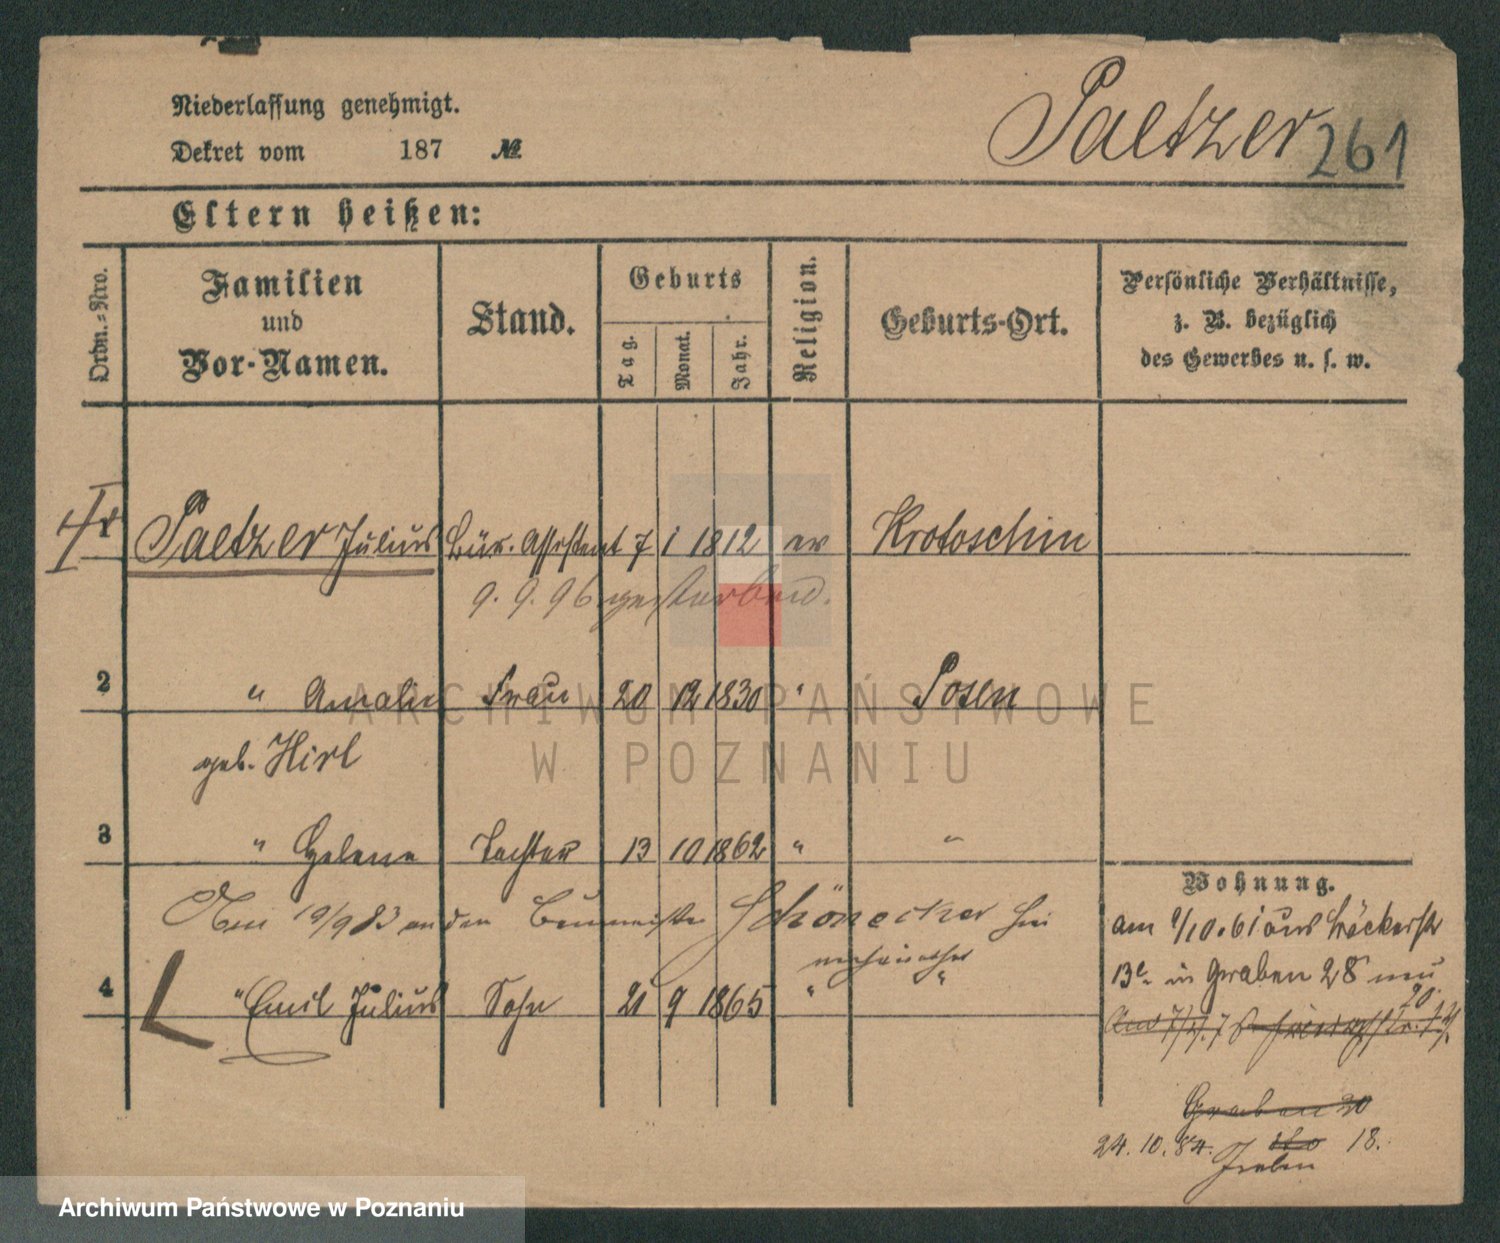 Niederlassung genehmigt.
Paetzer 261
Dekret vom 187 №
Eltern heißen:
Ordn.-Nro.
Familien und Vor-Namen.
Stand.
Geburts
Tag.
Monat.
Jahr.
Religion.
Geburts-Ort.
Persönliche Verhältnisse,
z. B. bezüglich
des Gewerbes u. s. w.
Paetzer Julius Bür. Assistent 7 1 1812 ev Krotoschin
9. 9. 96 gestorben.
2 " Amalie Frau 20 12 1830 " Posen
geb. Hirl
3 " Helene Tochter 13 10 1862 " "
19/9 83 an den Baumeister Schönecker hier
verheirathet
4 " Emil Julius Sohn 21 9 1865 " "
Wohnung.
am 1/10. 61 aus
in Graben 28 neu
20.
Graben 20
24. 10. 84. 18.
ARCHIWUM PAŃSTWOWE
W POZNANIU
Archiwum Państwowe w Poznaniu